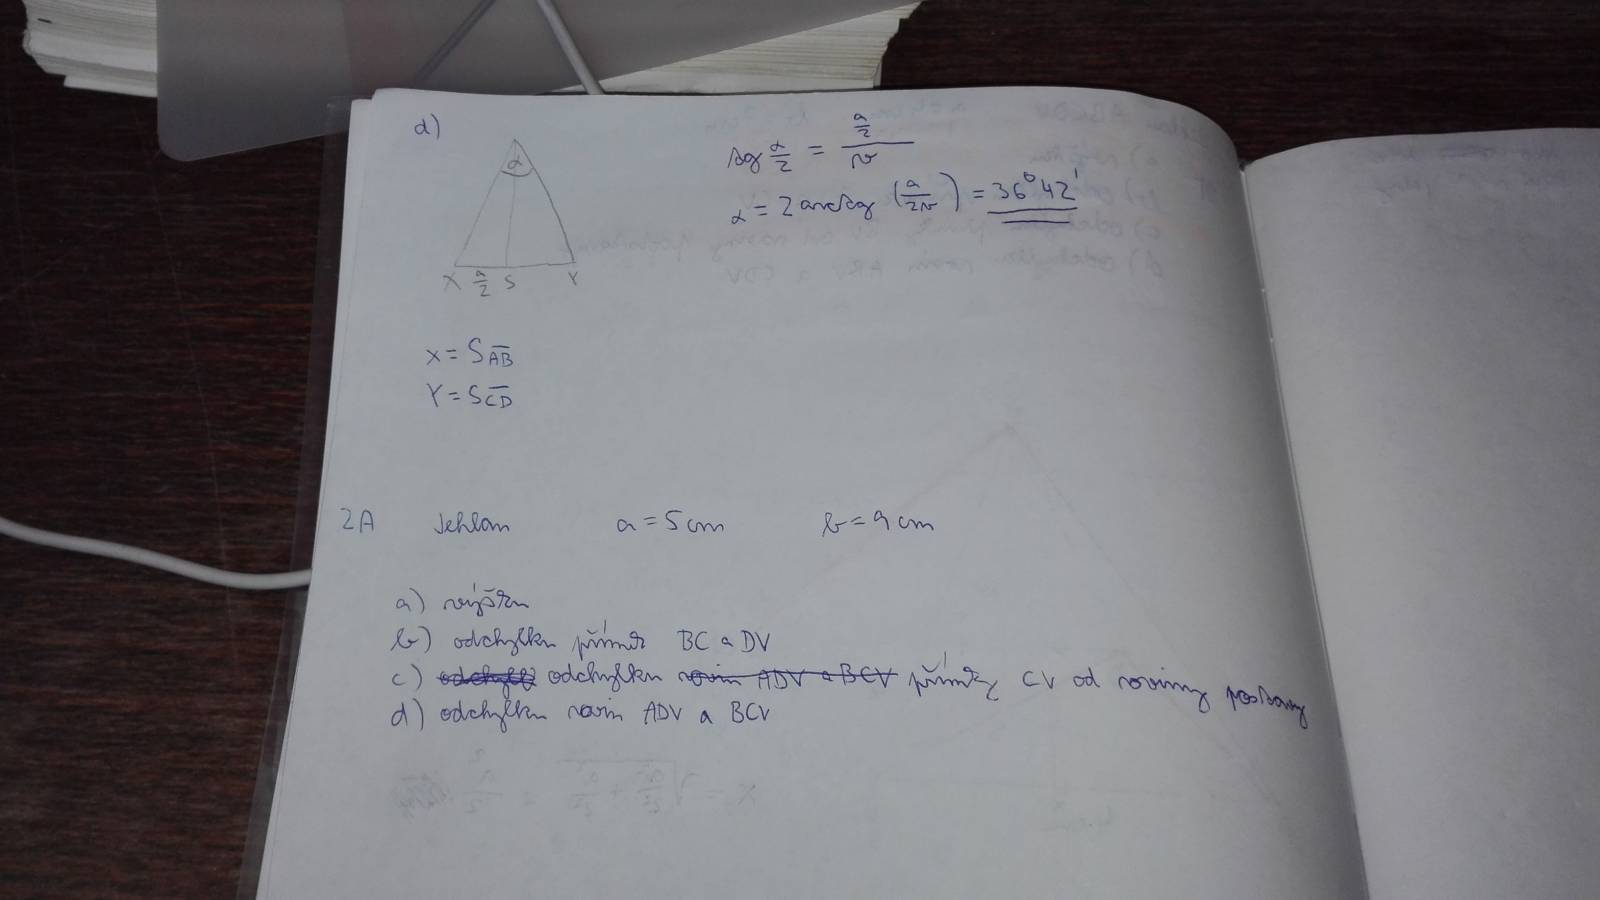 d)
tg α/2 = (a/2)/v
α
α = 2 arctg (a/2v) = 36°42'
X a/2 S Y
X = S_AB
Y = S_CD
2A Jehlan a = 5cm b = 9cm
a) výšku
b) odchylku přímek BC a DV
c) odchylku rovin ADV a BCV přímky CV od roviny podstavy
d) odchylku rovin ADV a BCV